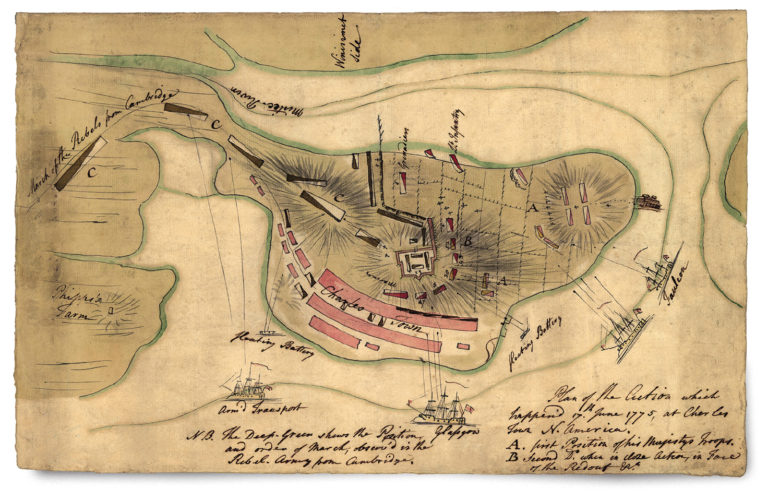 Winisimet
Side
Mistic River
March of the Rebels from Cambridge
C
C
C
C
Grenadiers
Lt. Infantry
A
B
A
Phipps's
Farm
Charles Town
Floating Battery
Floating Battery
Falcon
Arm'd Transport
Glasgow
N.B. The Deep Green shews the Position
and order of March, observ'd in the
Rebel Army from Cambridge.
Plan of the Action which
happend 17th. June 1775, at Charles
Town N. America.
A. first Position of his Majestys Troops.
B Second Do. when in the Action, in Face
of the Redout &c.